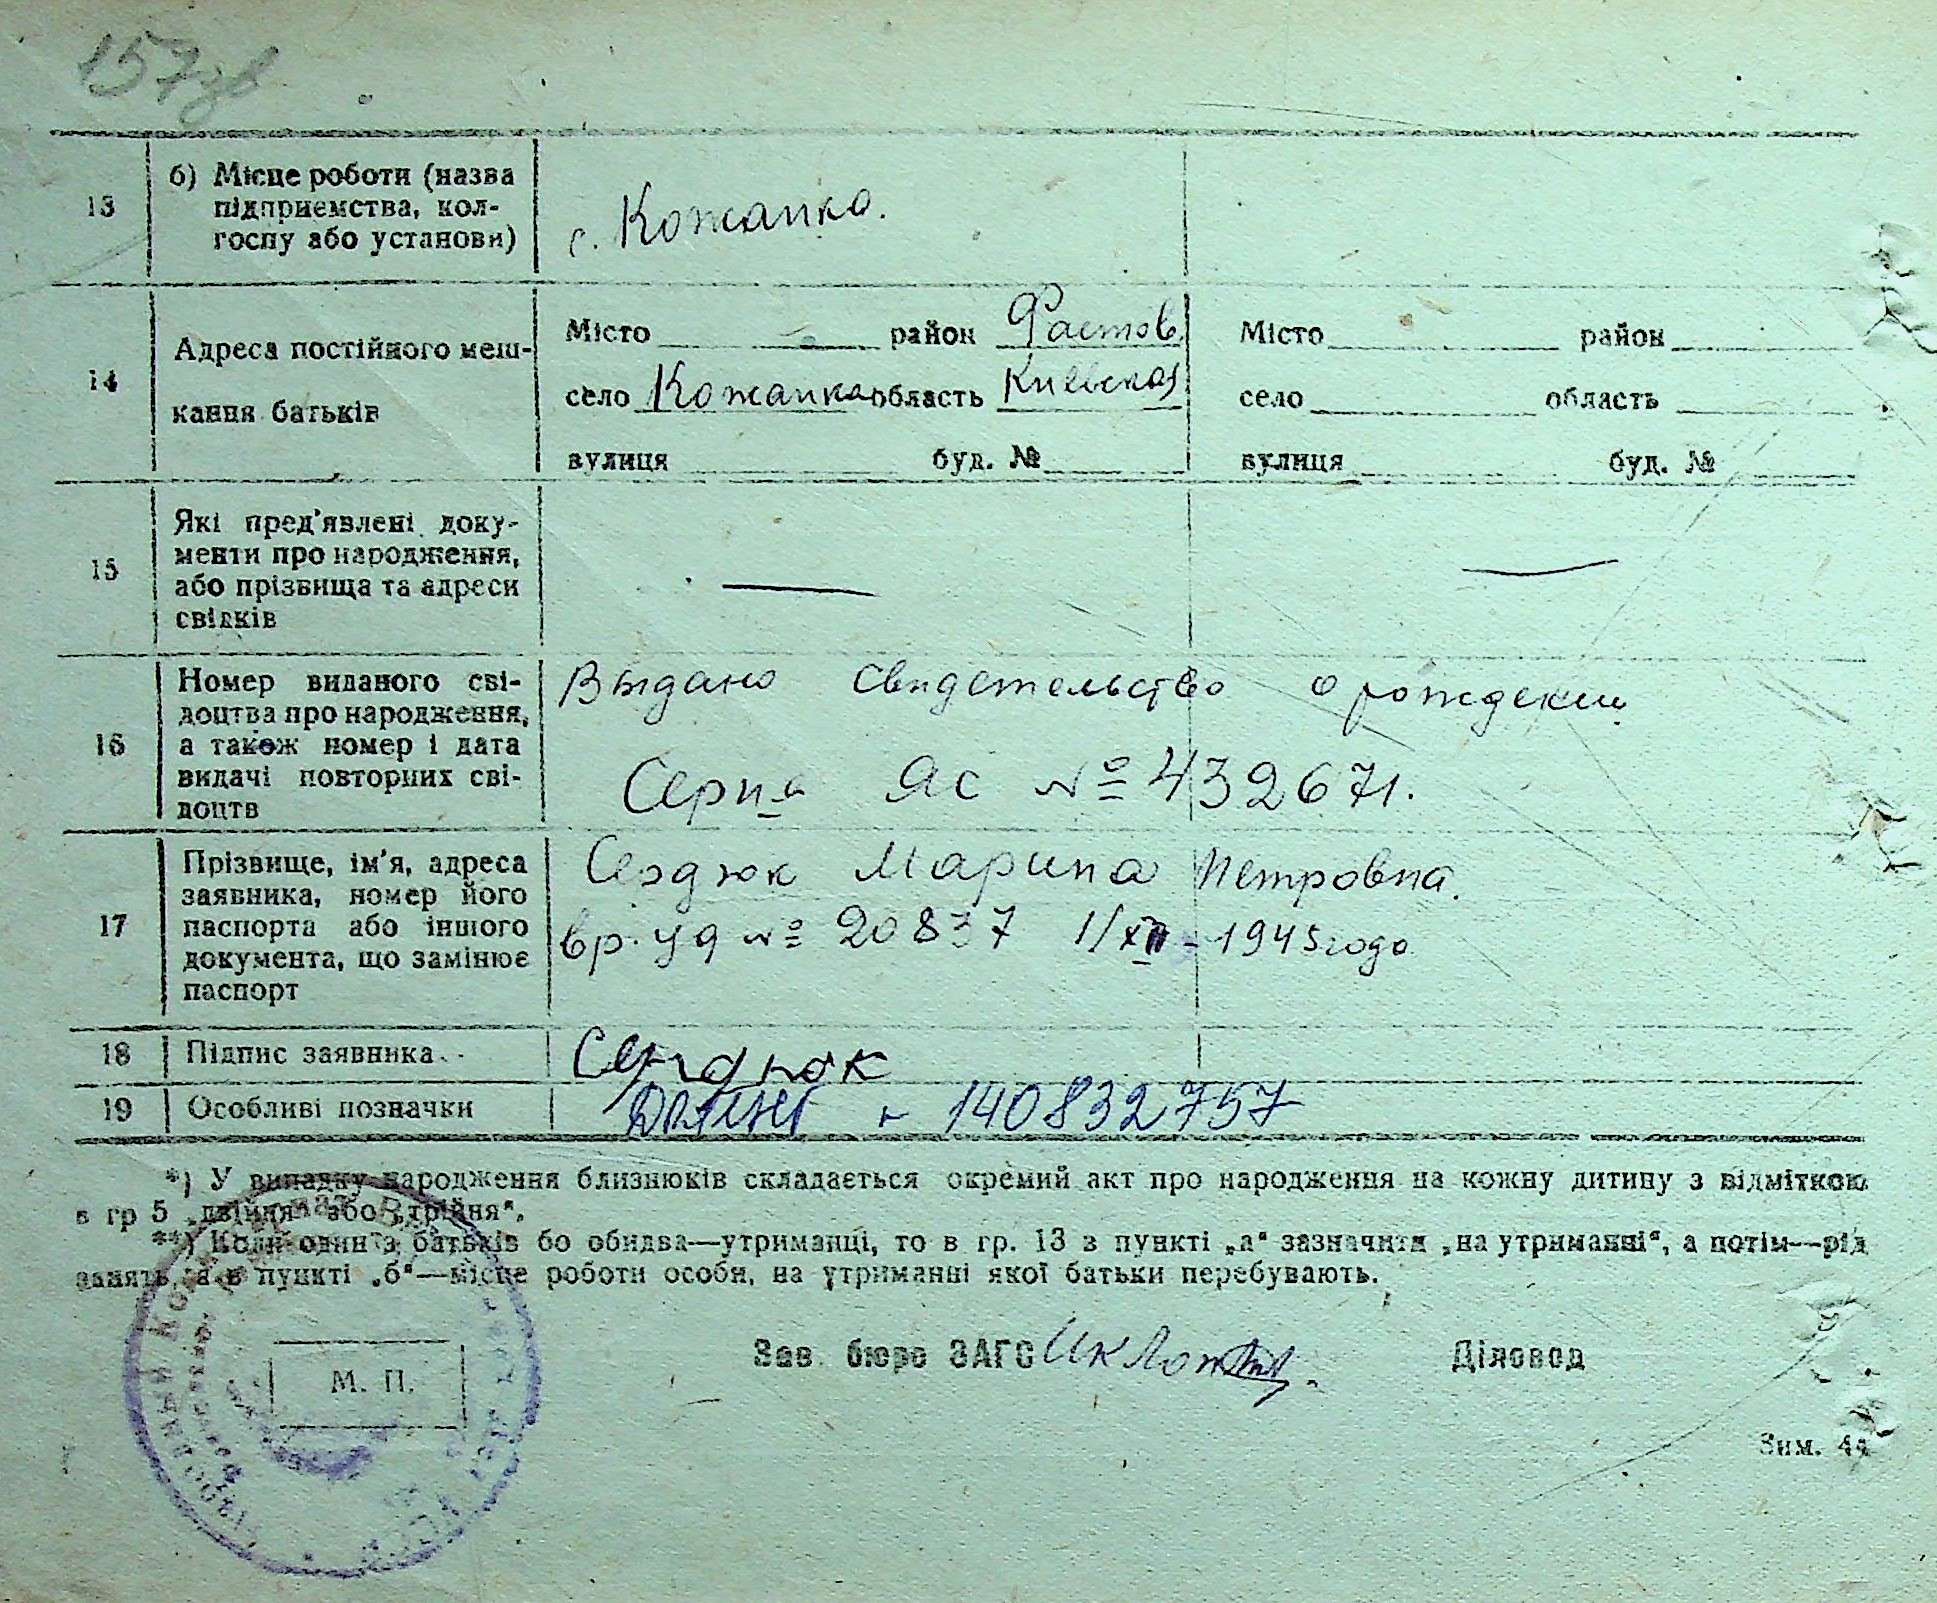 157зв
13 б) Місце роботи (назва підприємства, колгоспу або установи)
с. Кожанка.
14 Адреса постійного мешкання батьків
Місто район Фастов.
село Кожанка область Киевская
вулиця буд. №
Місто район
село область
вулиця буд. №
15 Які пред'явлені документи про народження, або прізвища та адреси свідків
—
—
16 Номер виданого свідоцтва про народження, а також номер і дата видачі повторних свідоцтв
Выдано свидетельство о рождении
Серия Яс № 432671.
17 Прізвище, ім'я, адреса заявника, номер його паспорта або іншого документа, що замінює паспорт
Сердюк Марина Петровна.
вр. уд № 20837 1/XII - 1945 года
18 Підпис заявника
Сердюк
19 Особливі позначки
140832757
*) У випадку народження близнюків складається окремий акт про народження на кожну дитину з відміткою
в гр 5 „двійня“ або „трійня“.
**) Коли один із батьків бо обидва—утриманці, то в гр. 13 в пункті „а“ зазначити „на утриманні“, а потім—рід
занять, а в пункті „б“—місце роботи особи, на утриманні якої батьки перебувають.
М. П.
Зав. бюро ЗАГС
Діловод
Зим. 44